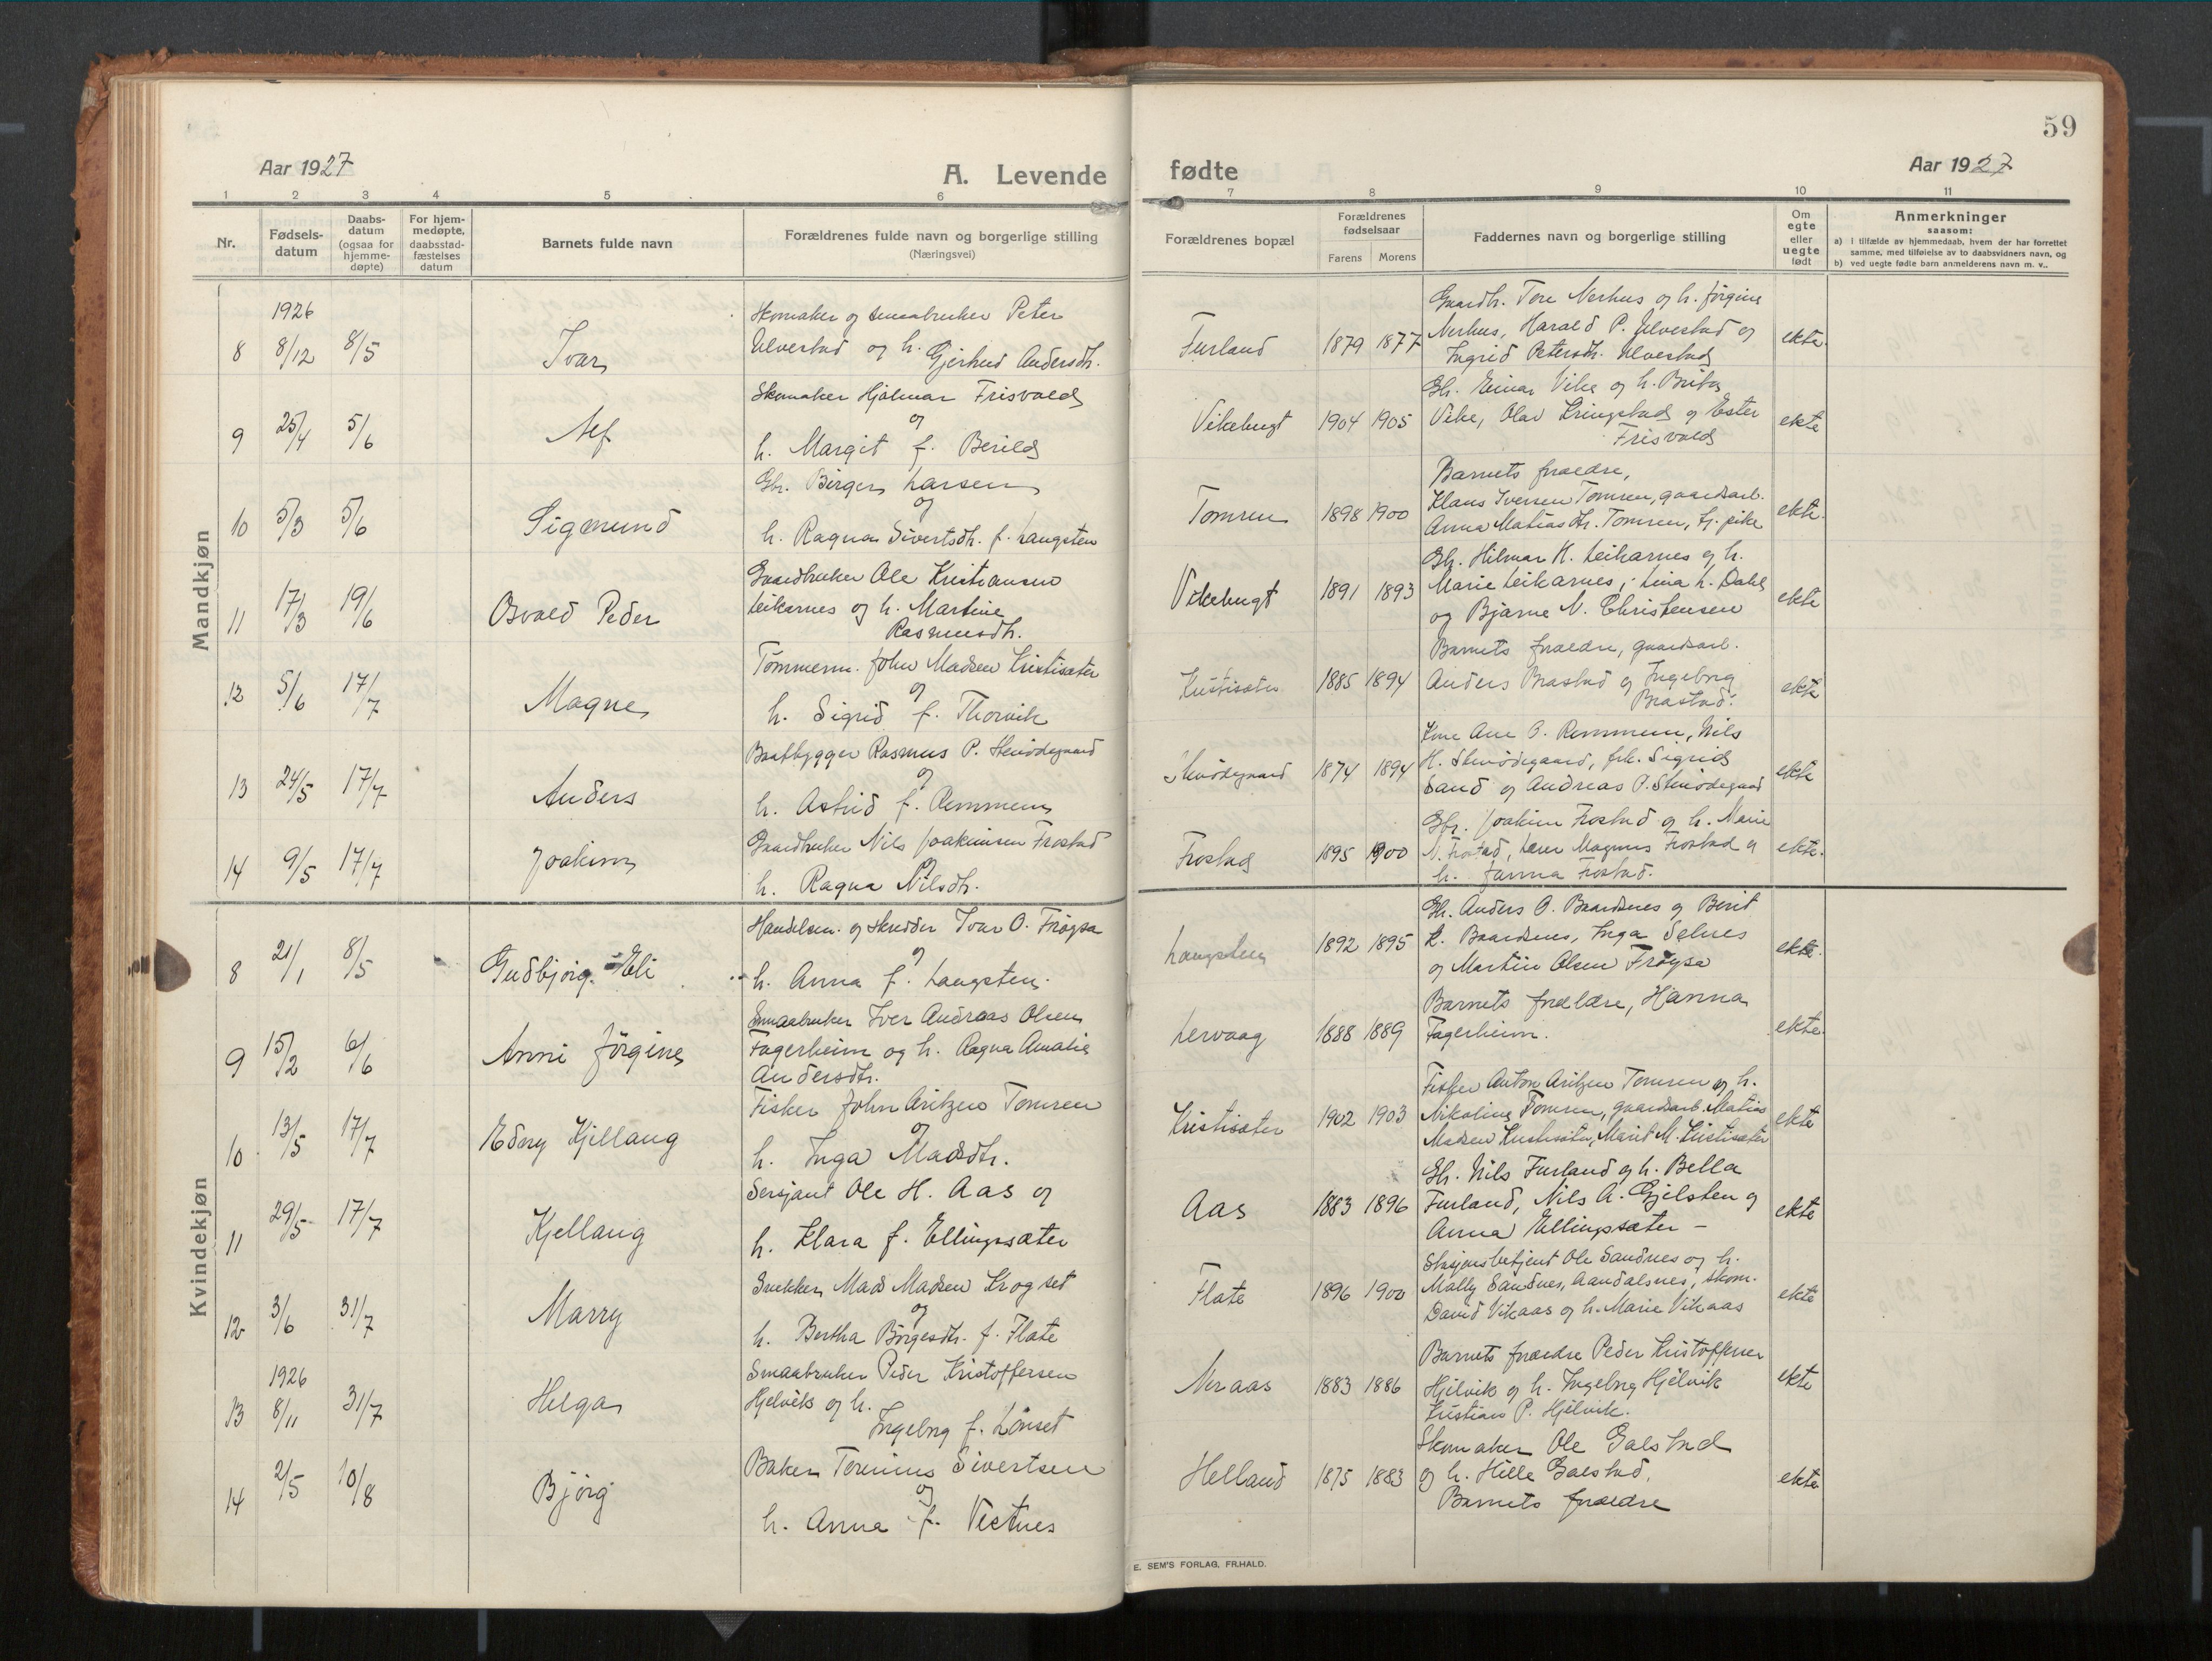 59
Aar 1927
A. Levende fødte
Aar 1927
1 2 3 4 5 6 7 8 9 10 11
Nr.
Fødselsdatum
Daabsdatum (ogsaa for hjemmedøpte)
For hjemmedøpte, daabsstadfæstelses datum
Barnets fulde navn
Forældrenes fulde navn og borgerlige stilling (Næringsvei)
Forældrenes bopæl
Forældrenes fødselsaar
Farens Morens
Faddernes navn og borgerlige stilling
Om egte eller uegte født
Anmerkninger
saasom:
a) i tilfælde av hjemmedaab, hvem der har forrettet samme, med tilføielse av to daabsvidners navn, og
b) ved uegte fødte barn anmelderens navn m. v..
Mandkjøn
1926
8 8/12 8/5 Ivar
Skomaker og smaabruker Peter
Ulvestad og h. Gjertrud Andersdt.
Furland 1879 1877
Gaardb. Tore Nerhus og h. Jørgine
Nerhus, Harald P. Ulvestad og
Ingrid Petersdt. Ulvestad
ekte
9 25/4 5/6 Alf
Skomaker Hjalmar Frisvold
og
h. Margit f. Berild
Vikebugt 1904 1905
Gb. Einar Vike og h. Brita
Vike, Olav Kringstad og Ester
Frisvold
ekte
10 5/3 5/6 Sigmund
Gbr. Birger Larsen
og
h. Ragna Sivertsdt. f. Langsten
Tomren 1898 1900
Barnets foreldre,
Klaus Iversen Tomren, gaardsarb.
Anna Matiasdt. Tomren, tj. pike
ekte.
11 17/3 19/6 Osvald Peder
Gaardbruker Ole Kristiansen
Leikarnes og h. Martine
Rasmusdt.
Vikebugt 1891 1893
Gb. Hilmar K. Leikarnes og h.
Marie Leikarnes, Lina L. Dahl
og Bjarne N. Christensen
ekte
12 5/6 17/7 Magne
Tømmerm. John Madsen Kristisæter
og
h. Sigrid f. Thorvik
Kristisæter 1885 1894
Barnets foreldre, gaardsarb.
Anders Brastad og Ingeborg
Brastad.
ekte
13 24/5 17/7 Anders
Baatbygger Rasmus P. Stenødegaard
og
h. Astrid f. Remmem
Stenødegaard 1874 1894
Kone Ane O. Remmem, Nils
H. Stenødegaard, frk. Sigrid
Sand og Andreas P. Stenødegaard
ekte
14 9/5 17/7 Joakim
Gaardbruker Nils Joakimsen Frostad
og
h. Ragna Nilsdt.
Frostad 1895 1900
Gbr. Joakim Frostad og h. Marie
N. Frostad, Lærer Magnus Frostad og
h. Janna Frostad.
ekte.
Kvindekjøn
8 21/1 8/5 Gudbjørg Eli
Handelsm. og skredder Ivar O. Frøysa
og
h. Anna f. Langsten.
Langsten 1892 1895
Gb. Anders O. Baardsnes og Berit
L. Baardsnes, Inga Selnes
og Martin Olsen Frøysa
ekte.
9 15/2 6/6 Anni Jørgine
Smaabruker Iver Andreas Olsen
Fagerheim og h. Ragna Amalie
Andersdt.
Lervaag 1888 1889
Barnets foreldre, Hanna
Fagerheim.
ekte
10 13/5 17/7 Edny Kjellaug
Fisker John Aritzen Tomren
og
h. Inga Madsdt.
Kristisæter 1902 1903
Fisker Anton Aritzen Tomren og h.
Nikoline Tomren, gaardsarb. Matias
Madsen Kristisæter, Marit M. Kristisæter
ekte
11 29/5 17/7 Kjellaug
Sersjant Ole H. Aas og
h. Klara f. Ellingsæter
Aas 1883 1896
Gb. Nils Furland og h. Bella
Furland, Nils A. Gjelsten og
Anna Ellingsæter -
ekte
12 3/6 31/7 Marry
Snekker Mads Madsen Krogset
og
h. Bertha Børgesdt. f. Flate
Flate 1896 1900
Stasjonsbetjent Ole Sandnes og h.
Mally Sandnes, Aandalsnes, skom.
David Vikaas og h. Marie Vikaas
ekte
1926
13 8/11 31/7 Helga
Smaabruker Peder Kristoffersen
Hjelvik og h.
Ingeborg f. Lønset
Neraas 1883 1886
Barnets foreldre Peder Kristoffersen
Hjelvik og h. Ingeborg Hjelvik
Kristian P. Hjelvik.
ekte
14 2/5 10/8 Bjørg
Baker Sivertsen
og
h. Anna f. Vestnes
Helland 1875 1883
Skomaker Ole Galstad
og h. Hille Galstad,
Barnets foreldre
ekte
E. SEM'S FORLAG, FR.HALD.